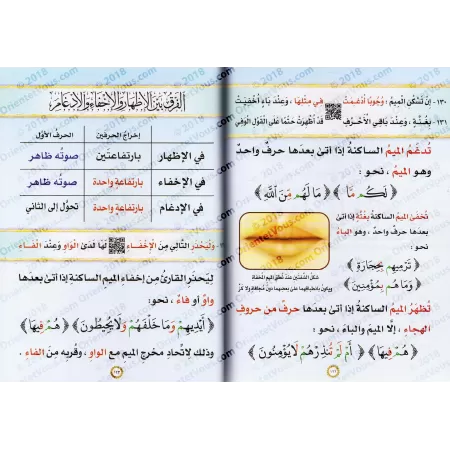 ١٣٠- إن تَسْكُنِ المِيمُ : وُجُوبًا أُدْغِمَتْ في مِثْلِهَا ، وَعِنْدَ بَاءٍ أُخْفِيَتْ
١٣١- بِغُنَّةٍ ، وَعِنْدَ بَاقِي الأَحْرُفِ قَدْ أُظْهِرَتْ حَتْمًا عَلَى القَوْلِ الوَفِي
تُدغَمُ الميمُ الساكنةُ إذا أتىٰ بعدَها حرفٌ واحدٌ
وهو الميمُ ، نحو :
﴿لَكُم مَّا﴾ ﴿مَا لَهُم مِّنَ اللَّهِ﴾
تُخفىٰ الميمُ الساكنةُ بغُنَّةٍ إذا أتىٰ
بعدَها حرفٌ واحدٌ ، وهو الباءُ
نحو :
﴿تَرْمِيهِم بِحِجَارَةٍ﴾
﴿وَمَا هُم بِمُؤْمِنِينَ﴾
شكل الشفتين عند نطق الميم المخفاة
تُظهَرُ الميمُ الساكنةُ إذا أتىٰ بعدَها حرفٌ من حروفِ
الهجاءِ ، إلا الميمَ والباءَ ، نحو :
﴿هُمْ فِيهَا﴾ ﴿أَمْ لَمْ تُنذِرْهُمْ لَا يُؤْمِنُونَ﴾
١١٢
الفرق بين الإظهار والإخفاء والإدغام
إخراجُ الحرفين الحرفُ الأوّل
في الإظهار بارتفاعتين صوتُه ظاهر
في الإخفاء بارتفاعة واحدة صوتُه ظاهر
في الإدغام بارتفاعة واحدة تحوَّل إلى الثاني
وَلْيَحْذَرِ التَّالِي مِنَ الإِخْفَاءِ لَهَا لَدَىٰ الوَاوِ وَعِنْدَ الفَاءِ
ليَحذرِ القارئُ مِن إخفاءِ الميمِ الساكنةِ إذا أتىٰ بعدَها
واوٌ أو فاءٌ ، نحوُ:
﴿أَيْدِيهِمْ وَمَا خَلْفَهُمْ وَلَا يُحِيطُونَ﴾ ﴿هُمْ فِيهَا﴾
وذلك لاتّحادِ مَخرجِ الميمِ مع الواوِ ، وقُربِه مِن الفاءِ .
١١٣
© 2018
OrientVous.com